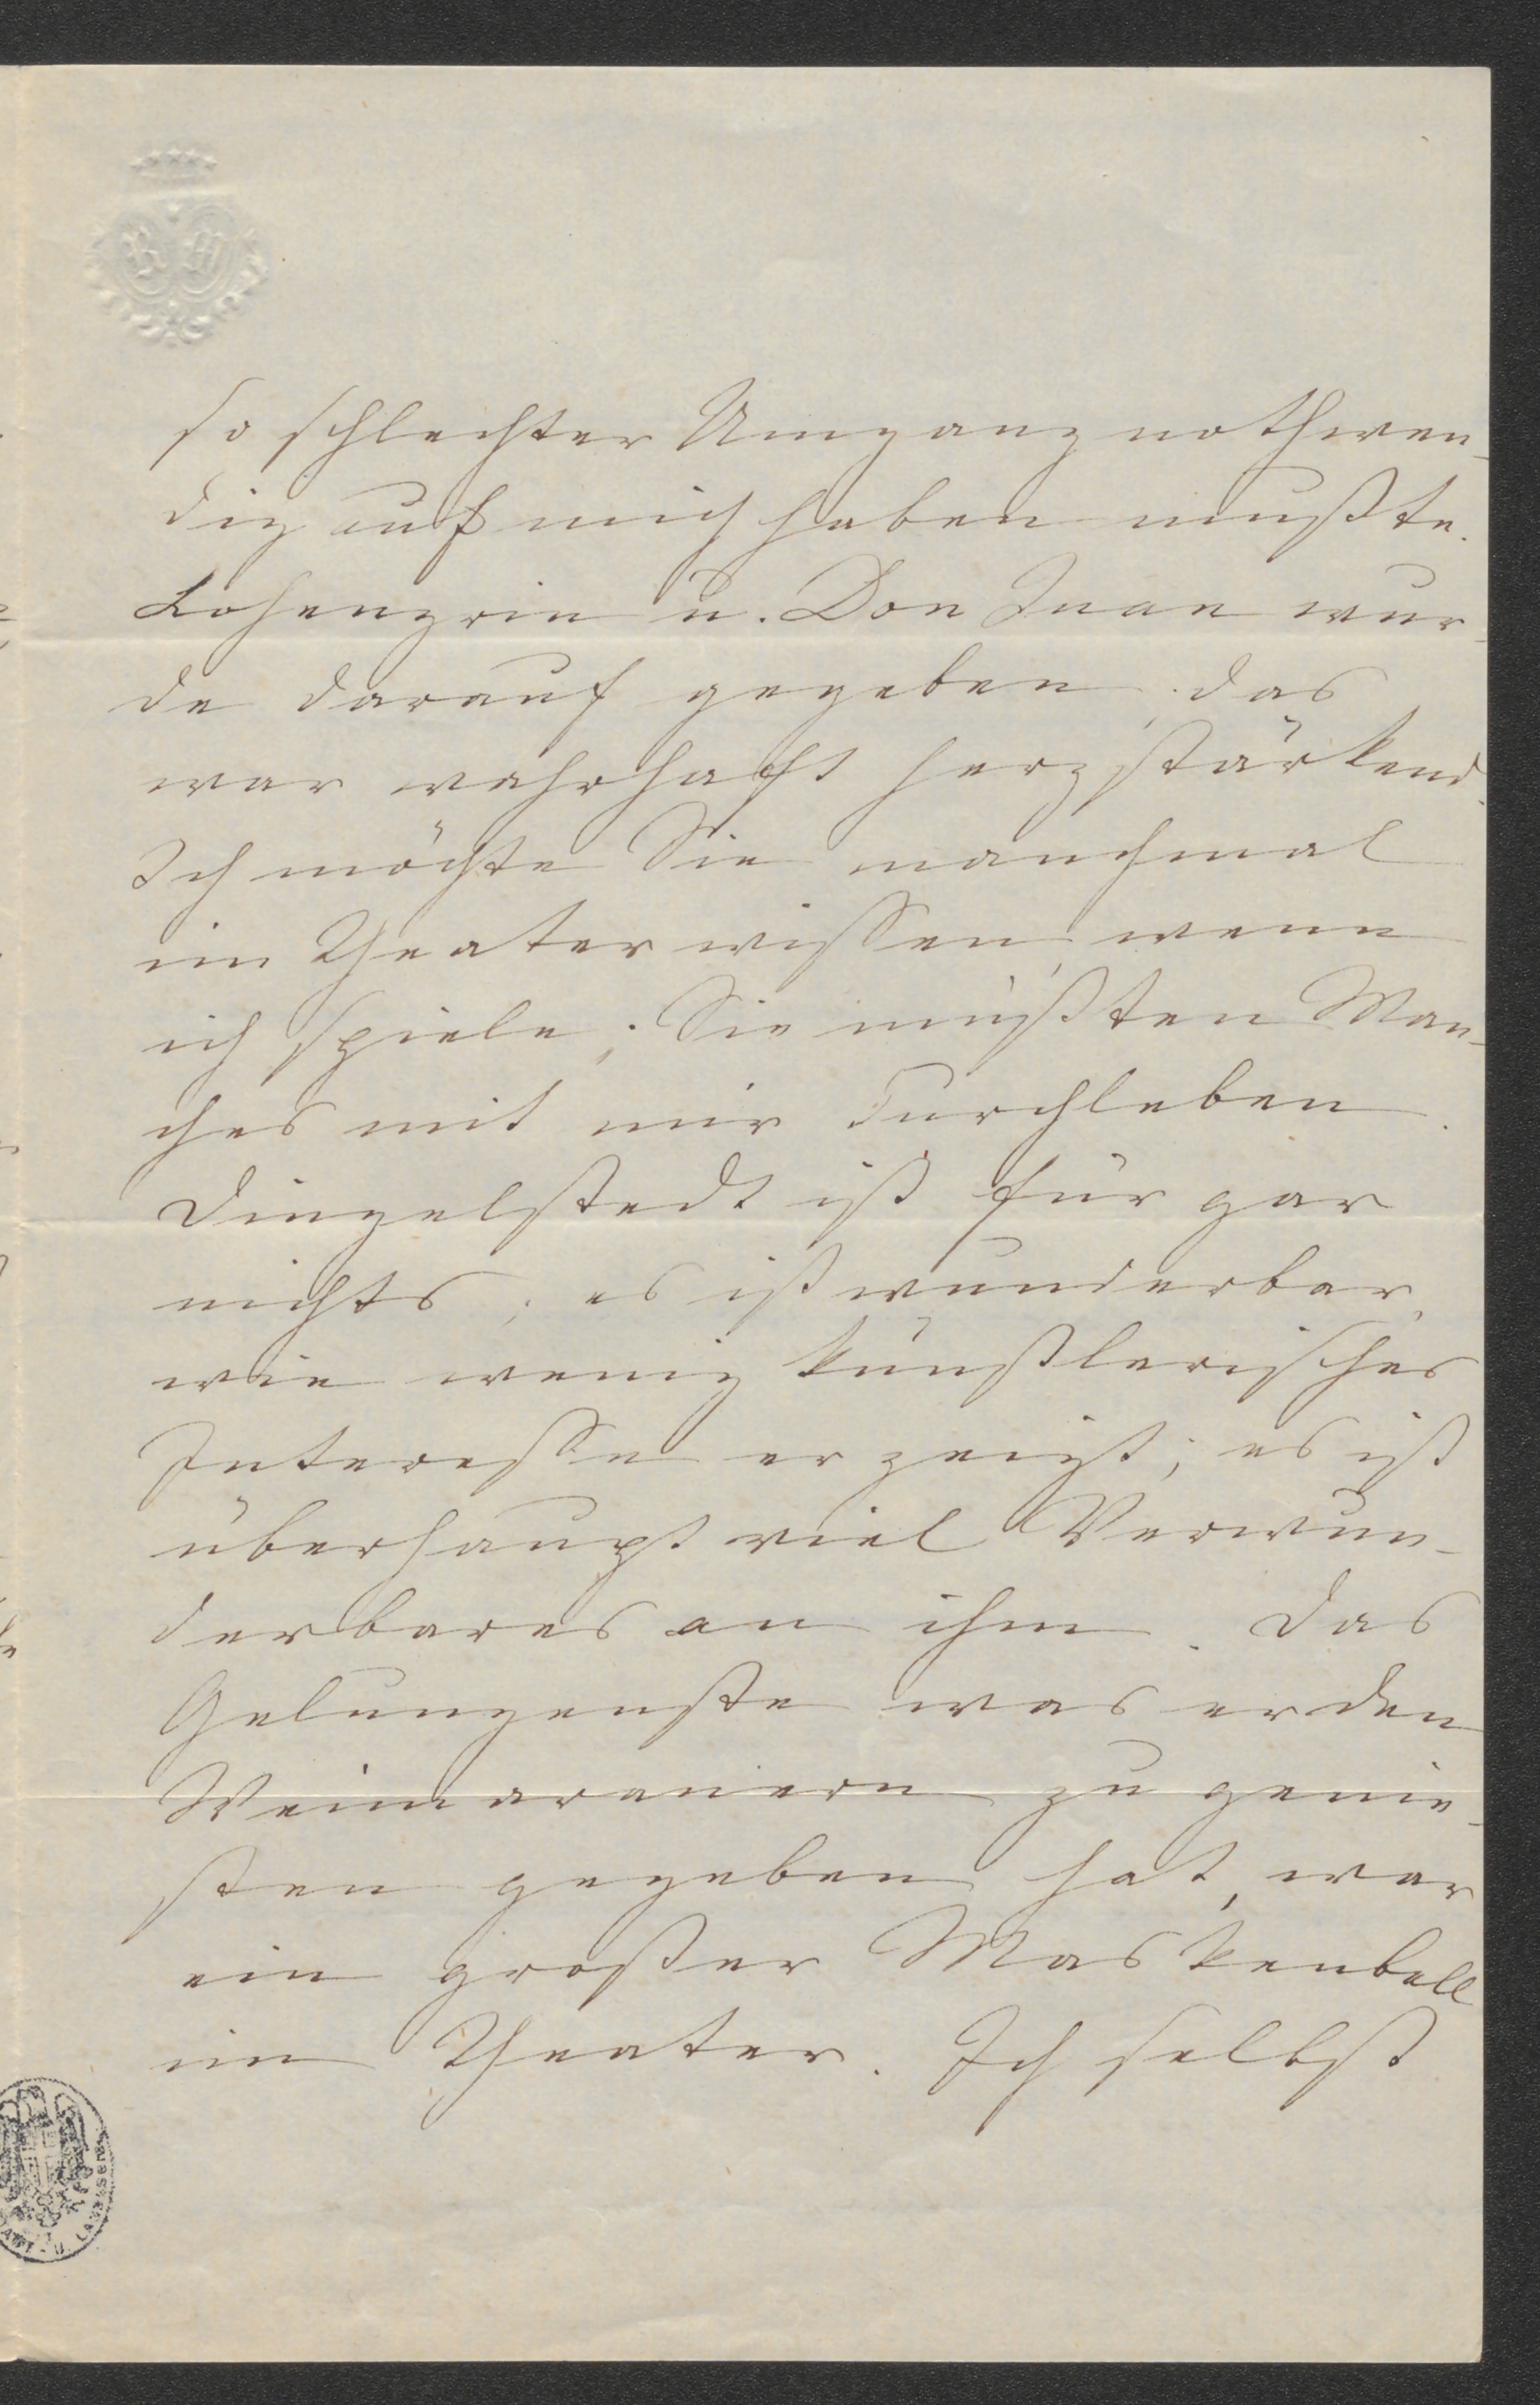 so schlechter Umgang nothwen-
dig auf mich haben mußte.
Lohengrin u. Don Juan wur-
de darauf gegeben, das
war wahrhaft herzstärkend.
Ich möchte Sie manchmal
im Theater wissen, wenn
ich spiele; Sie müßten Man-
ches mit mir durchleben.
Dingelstedt ist für gar
nichts; es ist wunderbar,
wie wenig künstlerisches
Interesse er zeigt; es ist
überhaupt viel Verwun-
derbares an ihm. Das
Gelungenste was er den
Weimaranern zu genie-
ßen gegeben hat, war
ein großer Maskenball
im Theater. Ich selbst